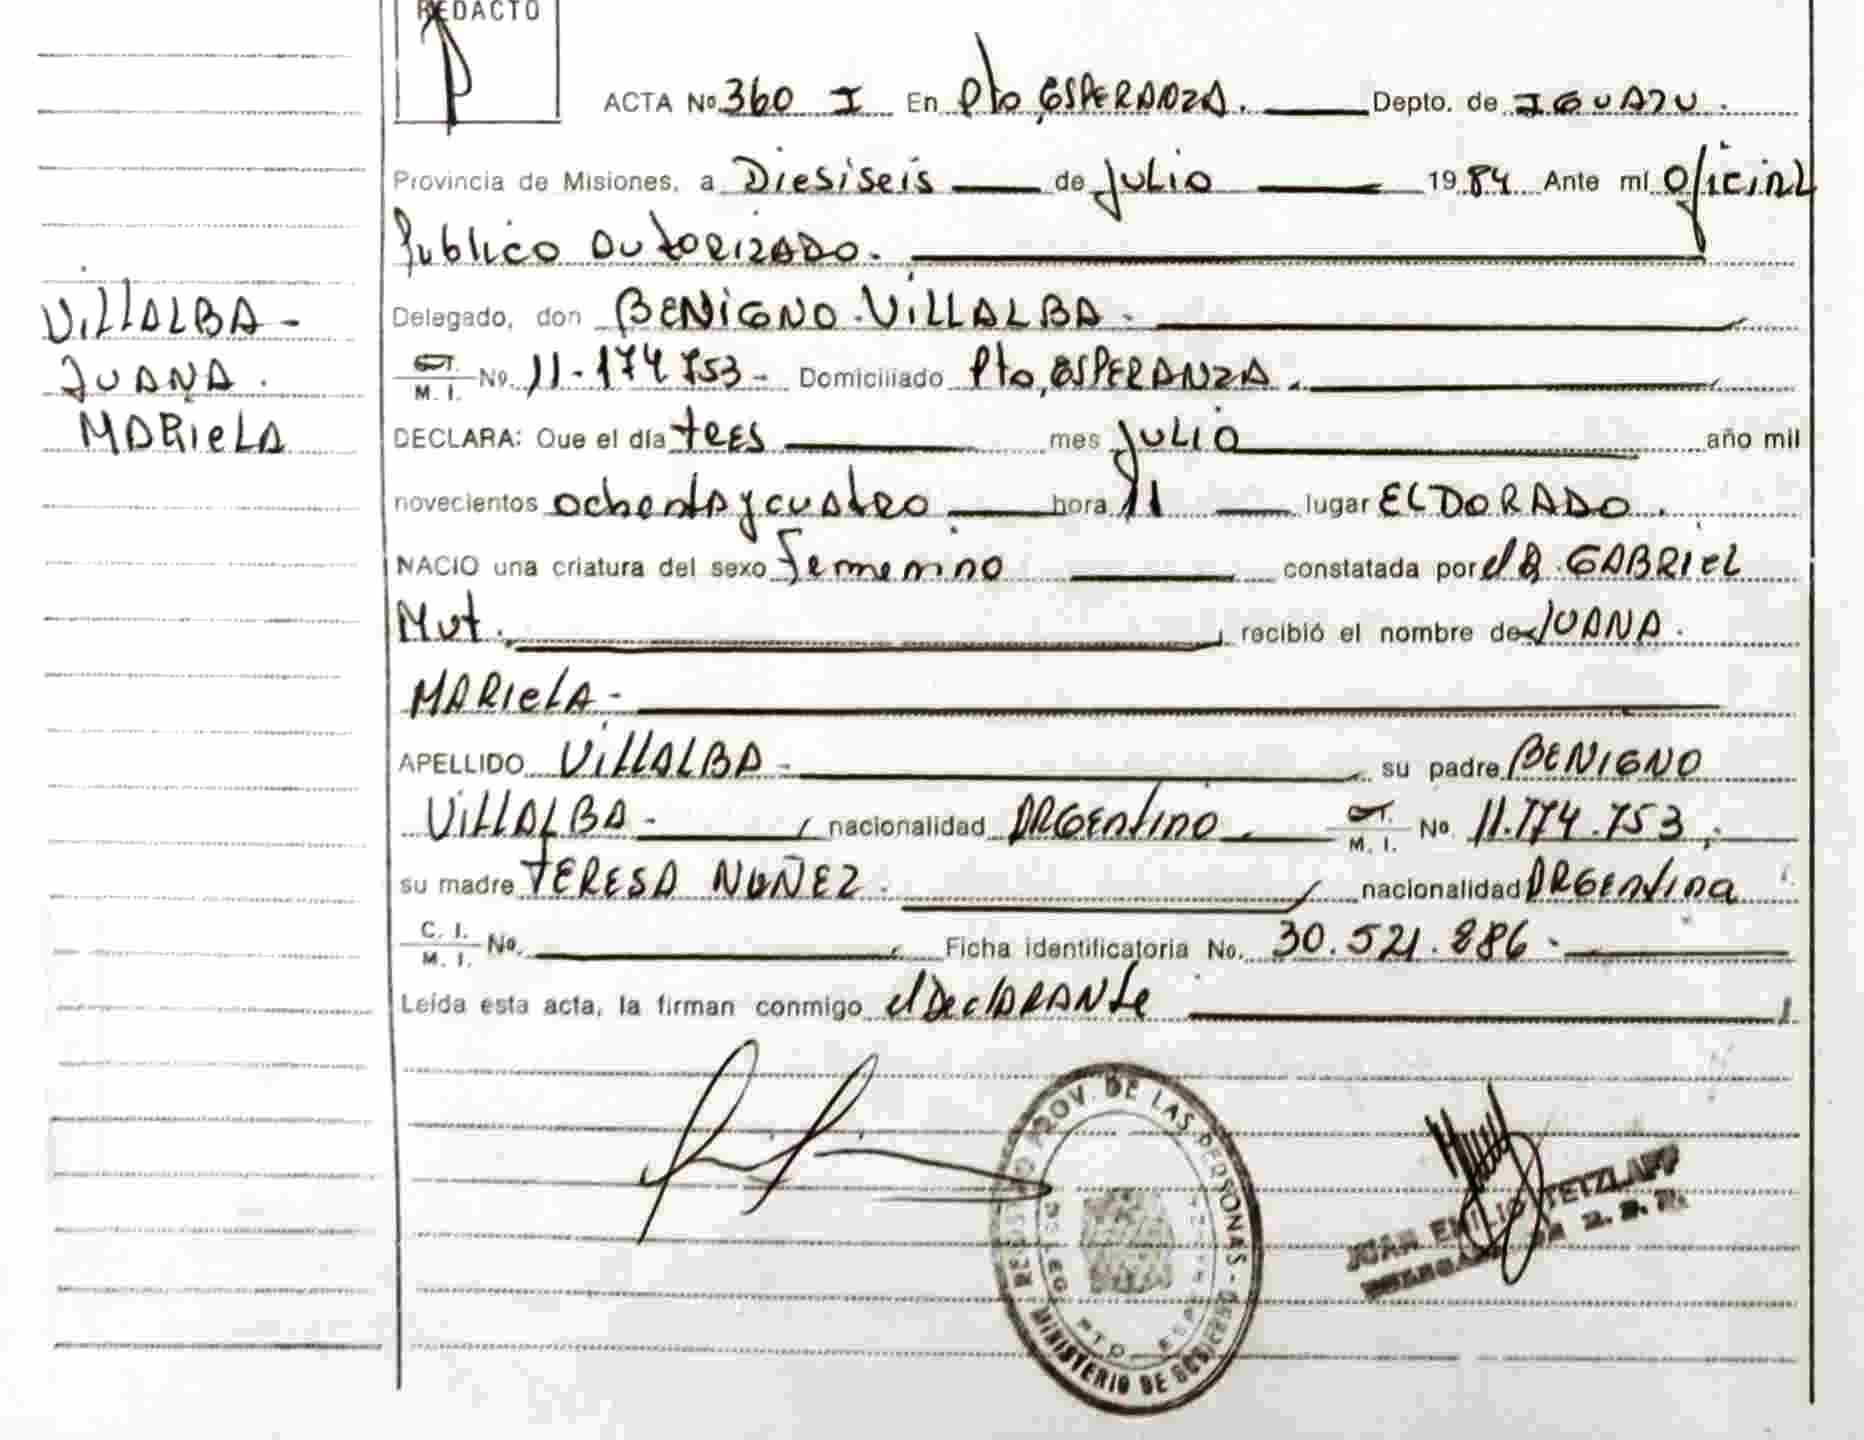 REDACTO
ACTA Nº 360 I En Pto ESPERANZA. Depto. de IGUAZU.
Provincia de Misiones, a Diesiseis de julio 1984 Ante mí Oficial
Publico AUTORIZADO.
Delegado, don BENIGNO VILLALBA.
M. I. Nº. 11-174753- Domiciliado Pto, ESPERANZA.
DECLARA: Que el día tRES mes julio año mil
novecientos ochenta y cuatro hora 11 lugar ELDORADO.
NACIO una criatura del sexo femenino constatada por el DR GABRIEL
Mut. recibió el nombre de JUANA.
MARIELA-
APELLIDO VILLALBA- su padre BENIGNO
VILLALBA- nacionalidad ARGENTINO. M. I. Nº. 11.774.753,
su madre TERESA NUÑEZ. nacionalidad ARGENTINA
C. I. M. I. Nº. Ficha identificatoria No. 30.521.886-
Leída esta acta, la firman conmigo el DeclARANte
VILLALBA-
JUANA.
MARIELA
REGISTRO PROV. DE LAS PERSONAS - MINISTERIO DE GOBIERNO
DELEG. PTO. ESPERANZA
JUAN EMILIO TETZLAFF